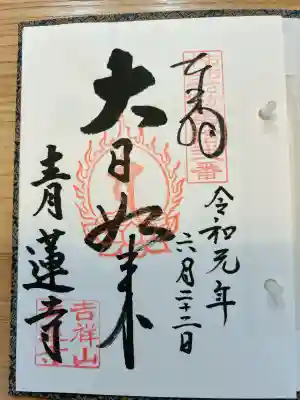 奉拝
令和元年
六月二十二日
大日如来
青蓮寺
吉祥山